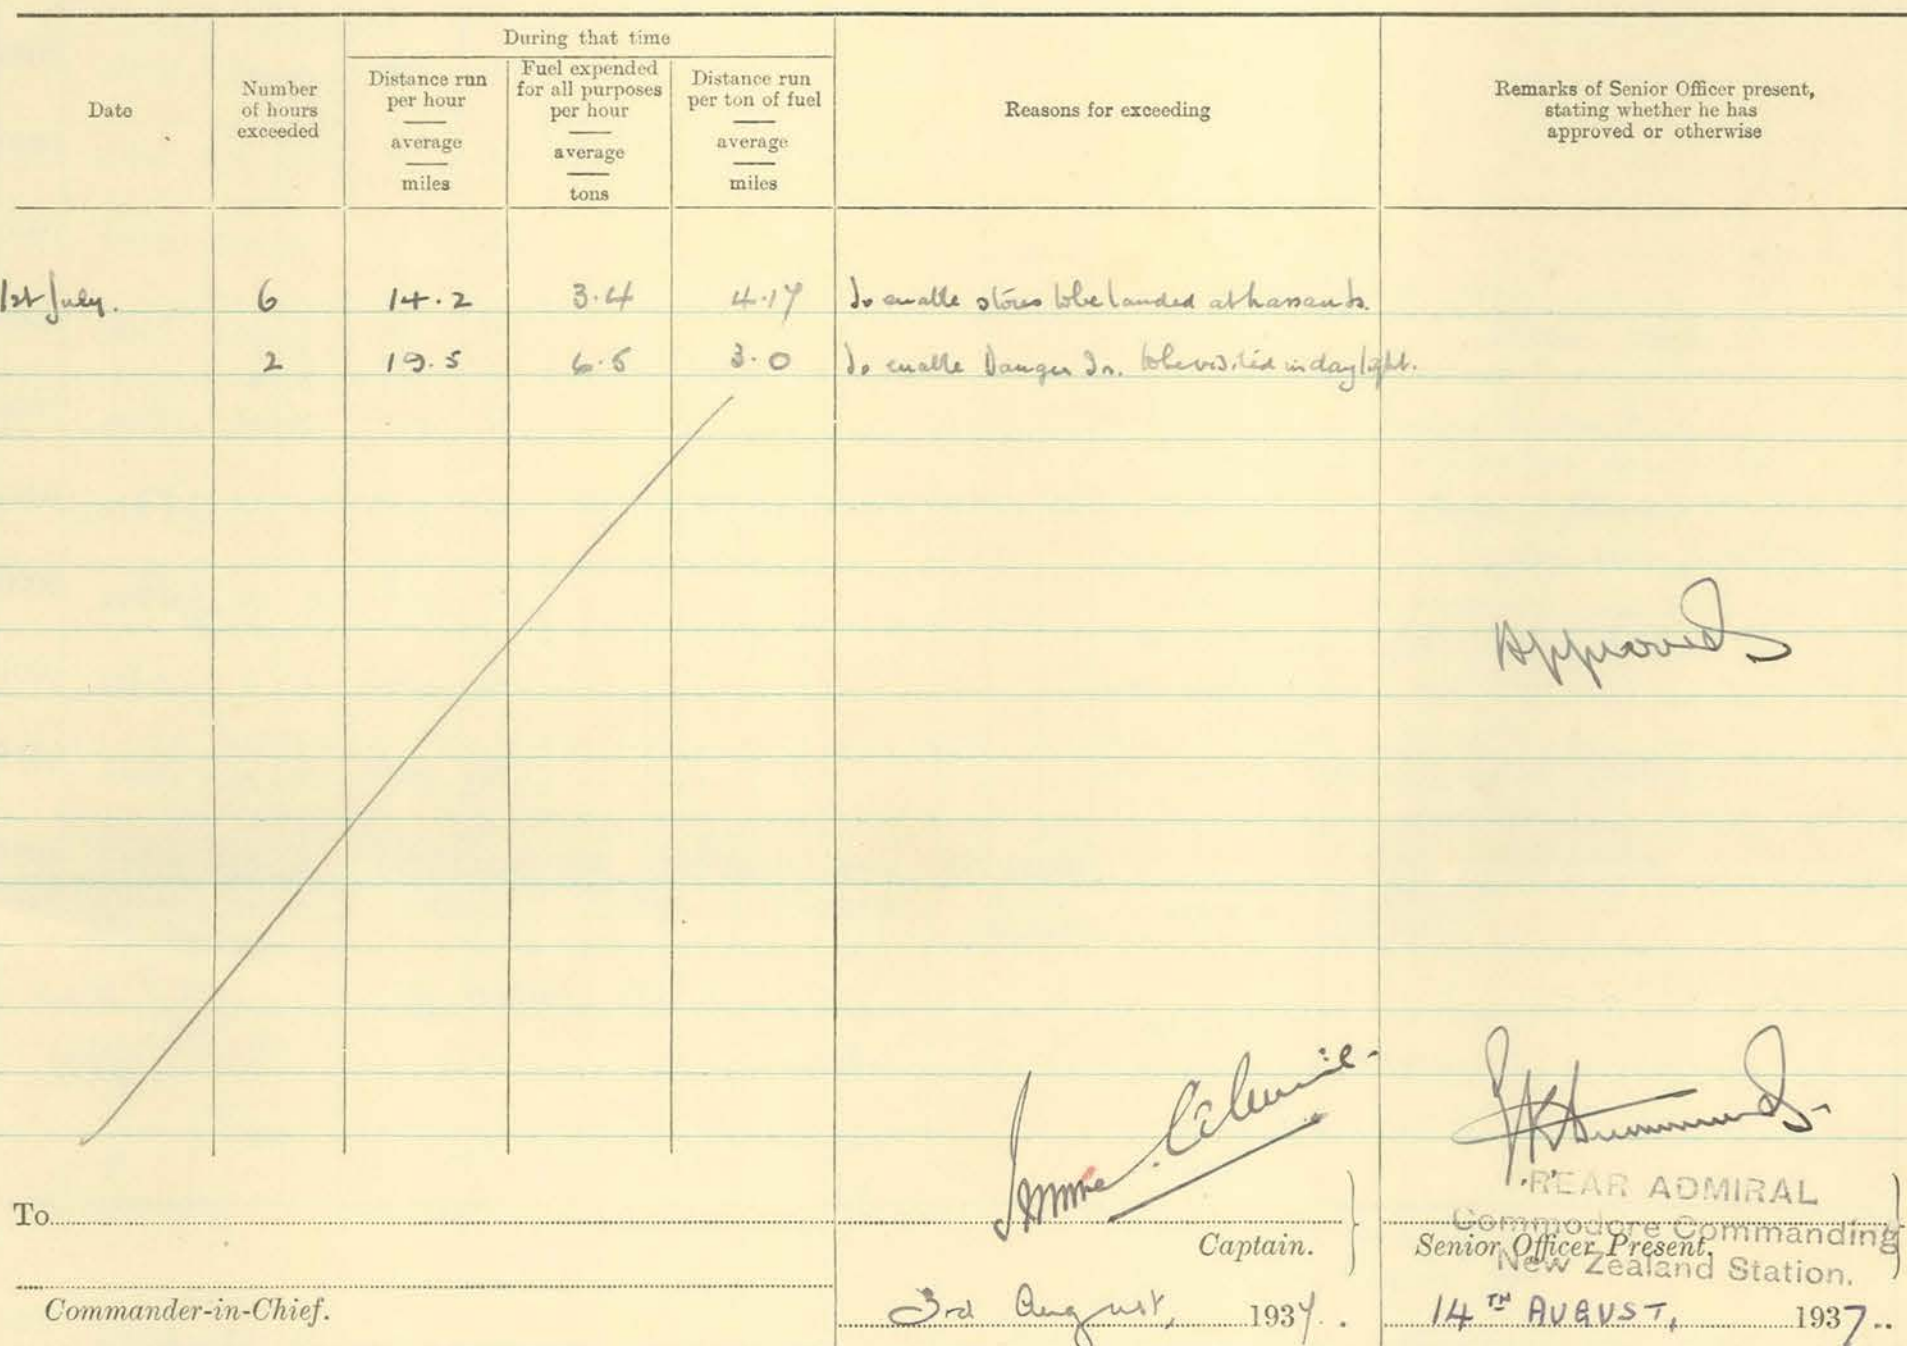 During that time
Date
Number
of hours
exceeded
Distance run
per hour
average
miles
Fuel expended
for all purposes
per hour
average
tons
Distance run
per ton of fuel
average
miles
Reasons for exceeding
Remarks of Senior Officer present,
stating whether he has
approved or otherwise
1st July. 6 14.2 3.4 4.17 To enable stores to be landed at
2 19.5 6.5 3.0 To enable Danger Is. to be visited in daylight.
Approved
REAR ADMIRAL
Commodore Commanding
New Zealand Station.
To
Captain.
Senior Officer Present.
Commander-in-Chief.
3rd August, 1937.
14TH AUGUST, 1937.